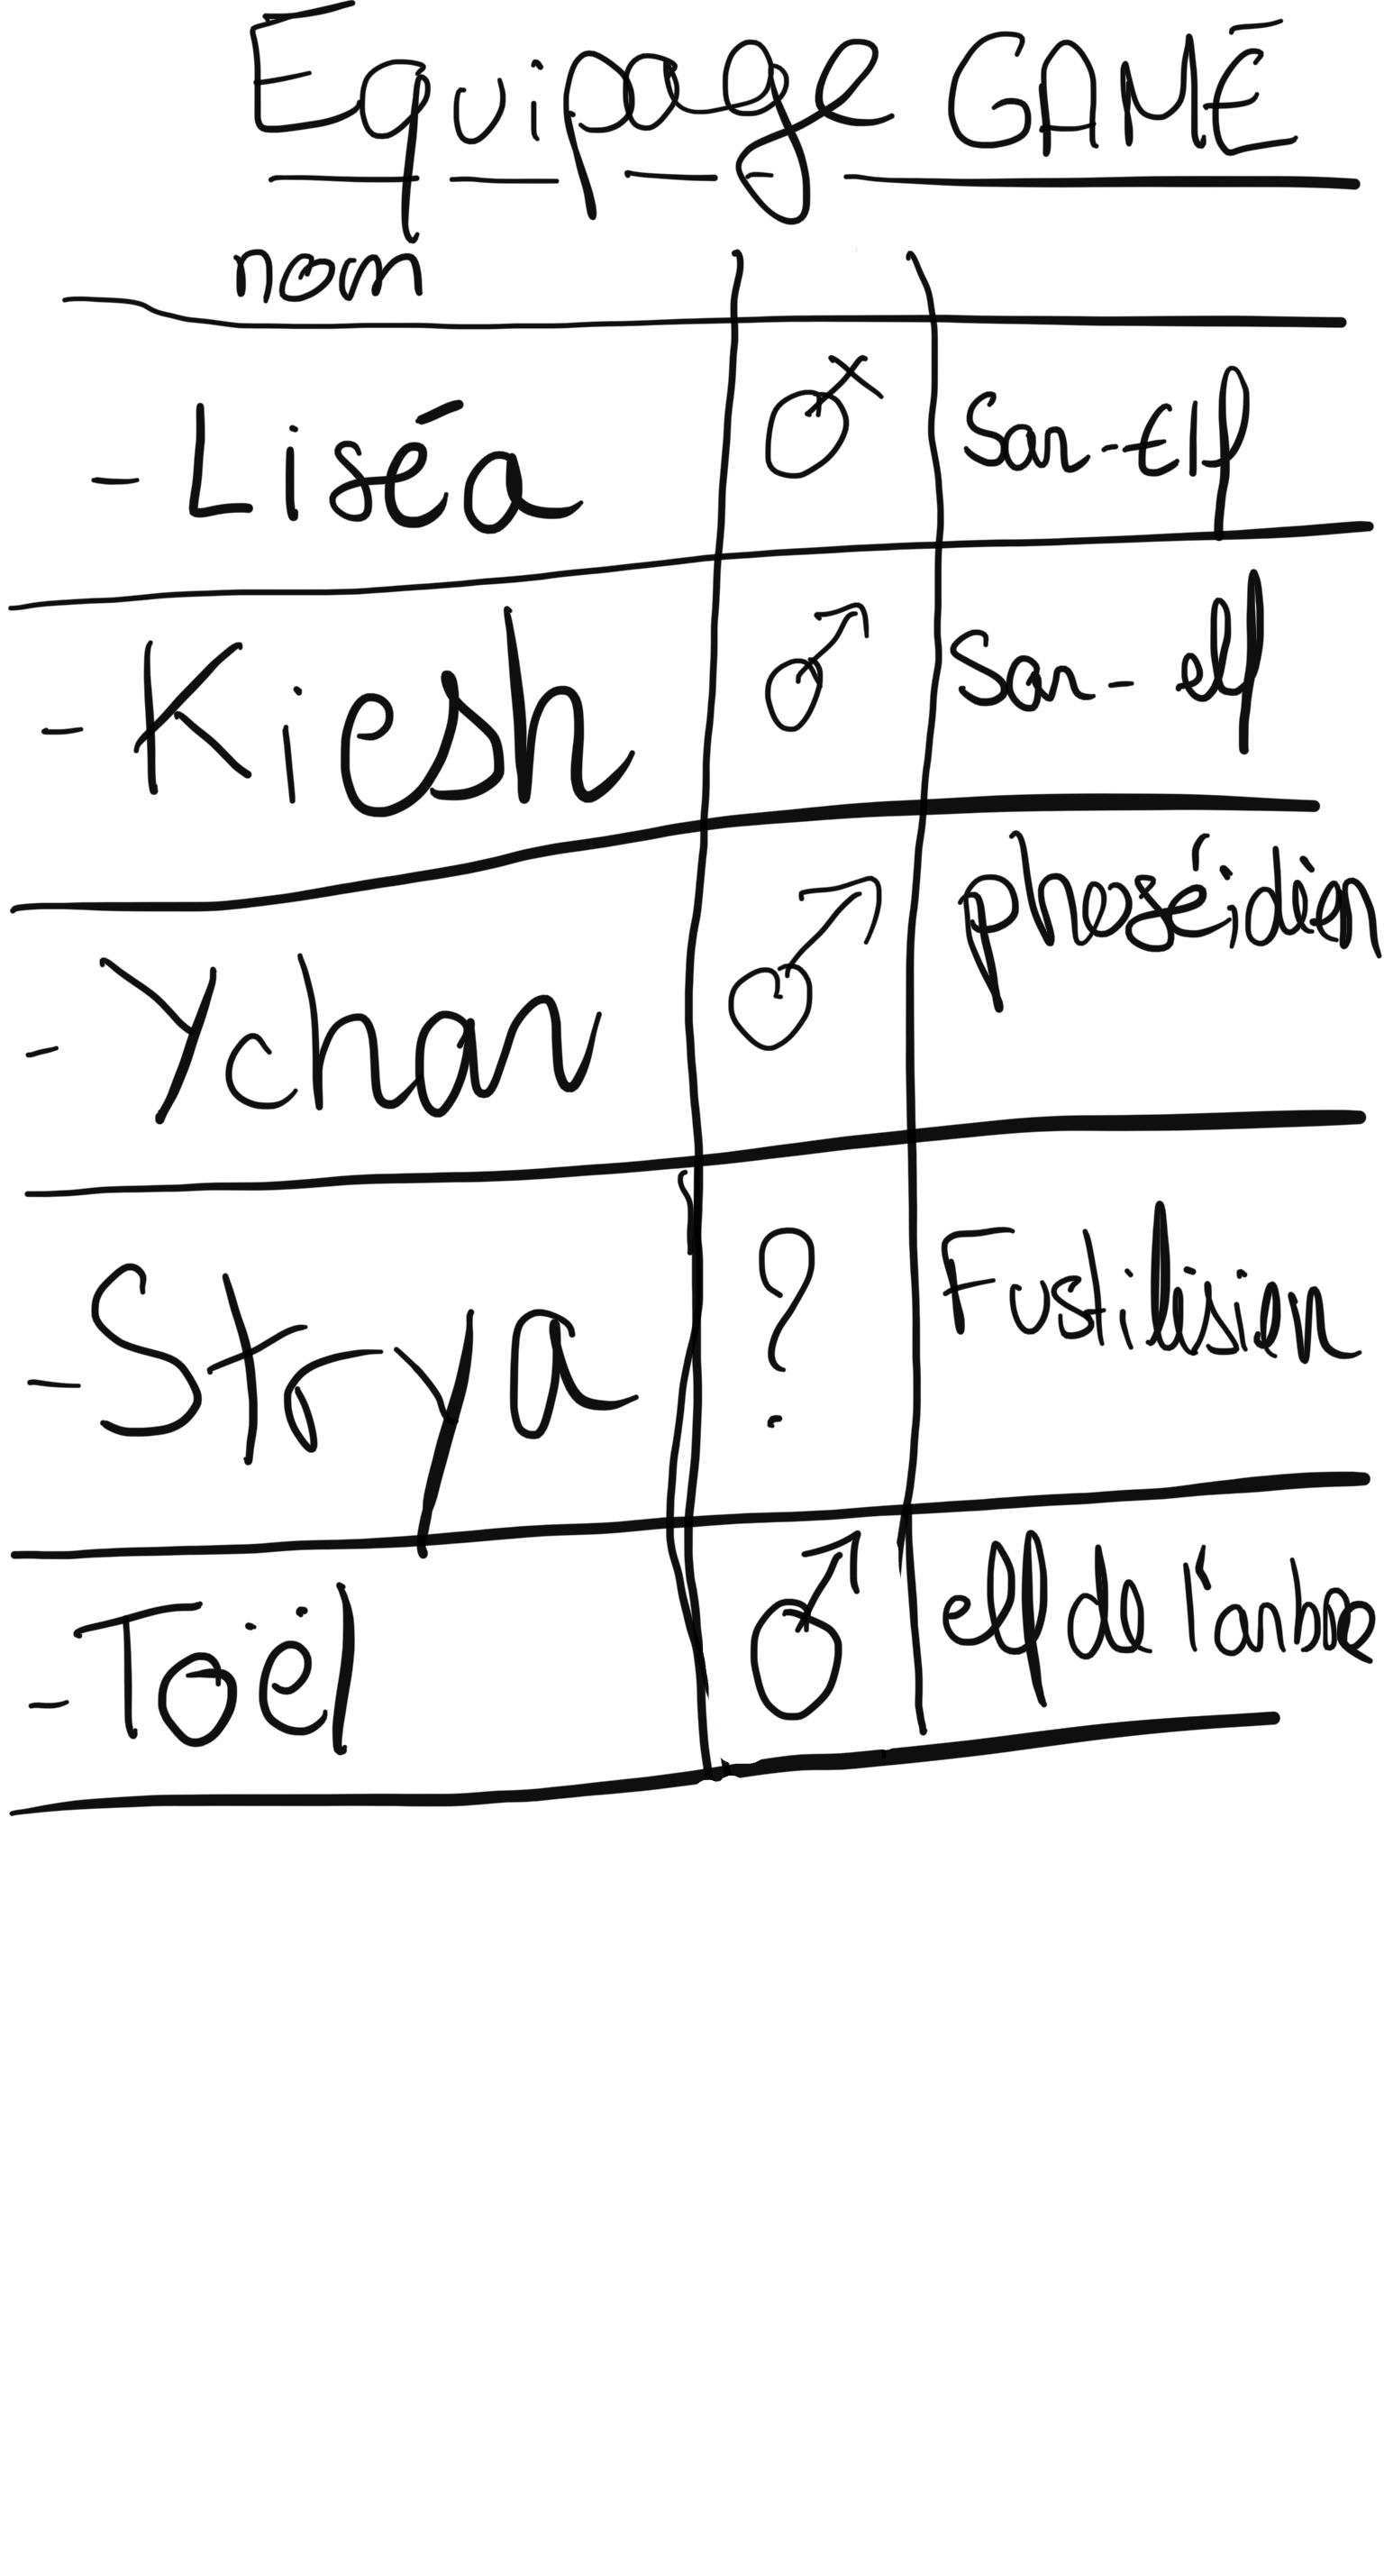 Equipage GAMÉ
nom
- Liséa ♀ San-Elf
- Kiesh ♂ San-elf
- Ychan ♂ phoséïdien
- Strya ? Fustilisien
- Toël ♂ elf de l'ombre